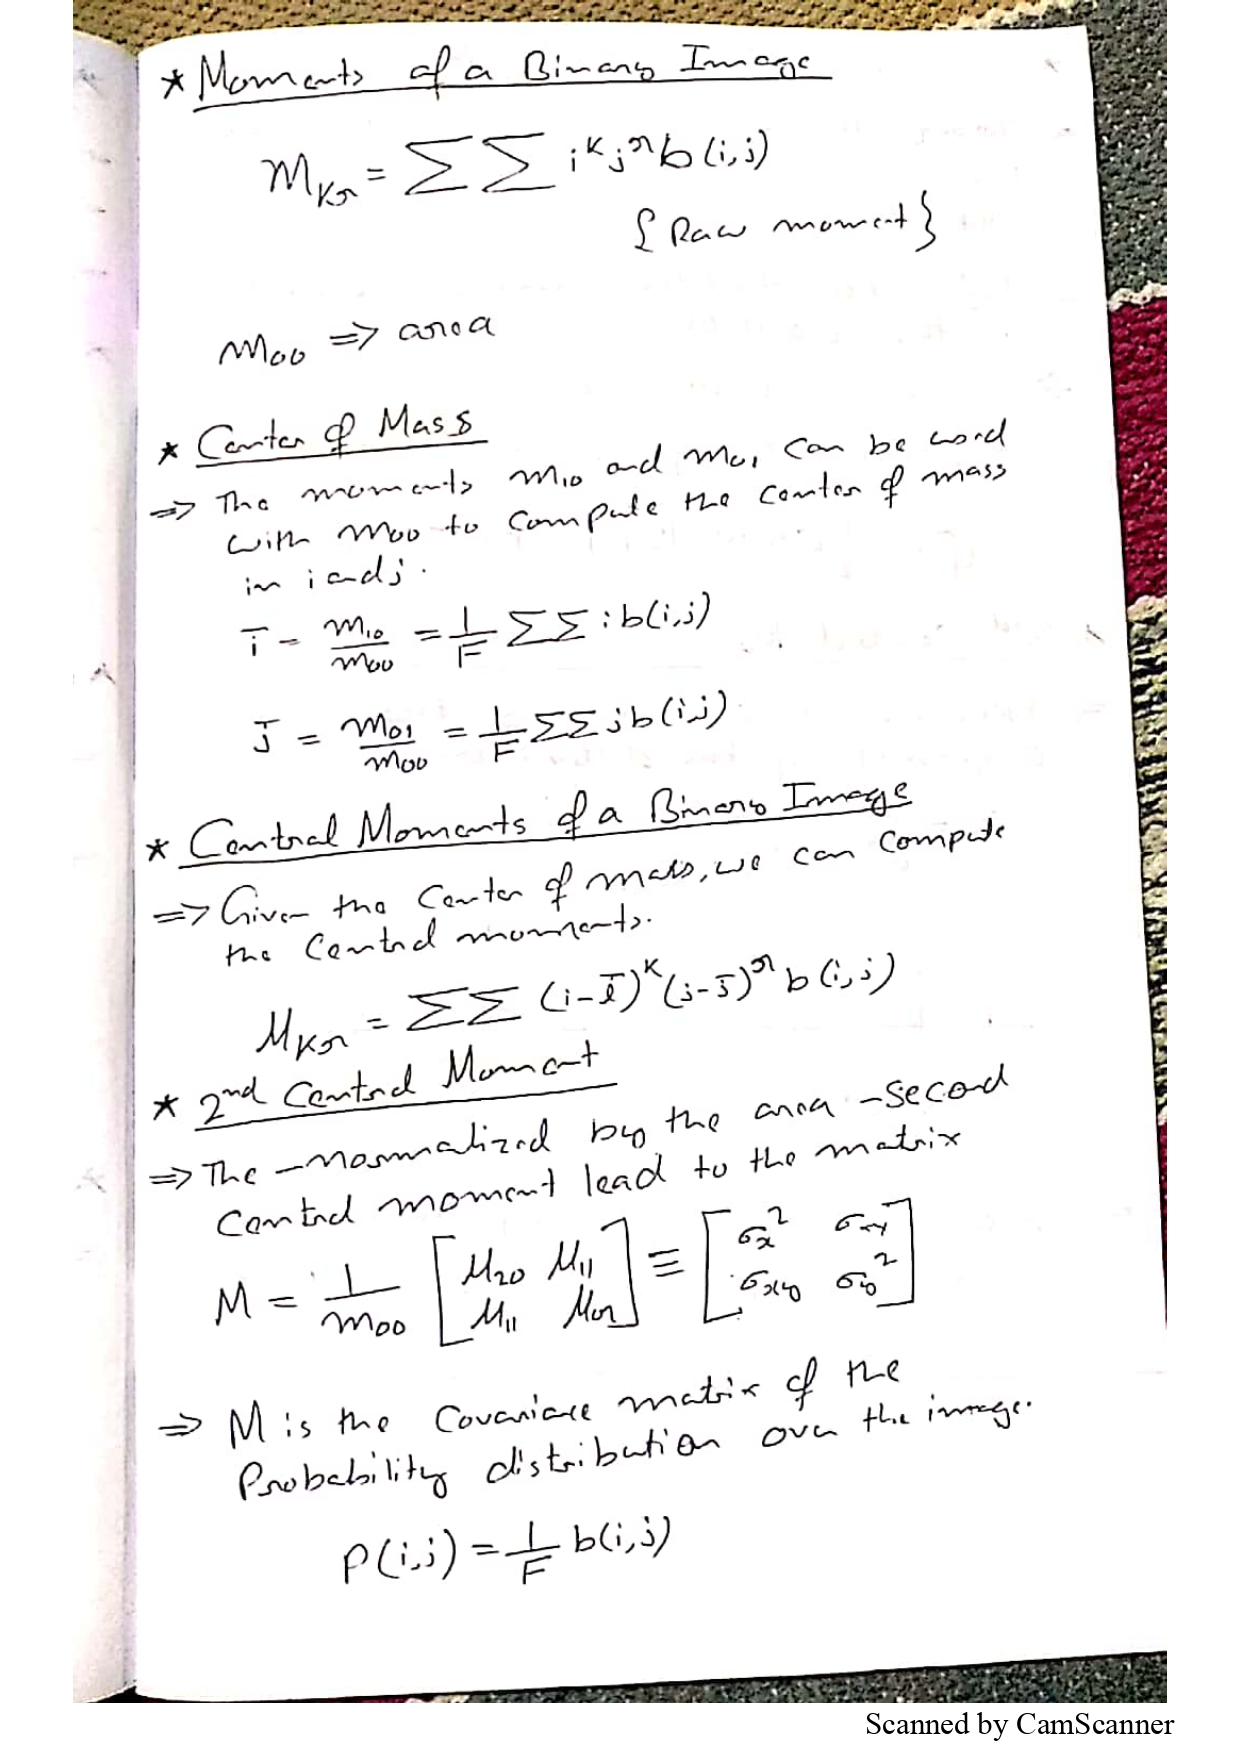 * Moments of a Binary Image
m_kr = ΣΣ i^k j^r b(i,j)
{Raw moment}
m_00 => area
* Center of Mass
=> The moments m_10 and m_01 can be used
with m_00 to compute the center of mass
in i and j.
ī = m_10/m_00 = 1/F ΣΣ i b(i,j)
j̄ = m_01/m_00 = 1/F ΣΣ j b(i,j)
* Central Moments of a Binary Image
=> Given the Center of mass, we can compute
the Central moments.
μ_kr = ΣΣ (i-ī)^k (j-j̄)^r b(i,j)
* 2nd Central Moment
=> The -normalized by the area -second
Central moment lead to the matrix
M = 1/m_00 [μ_20 μ_11; μ_11 μ_02] ≡ [σ_x^2 σ_xy; σ_xy σ_y^2]
=> M is the Covariance matrix of the
Probability distribution over the image.
P(i,j) = 1/F b(i,j)
Scanned by CamScanner